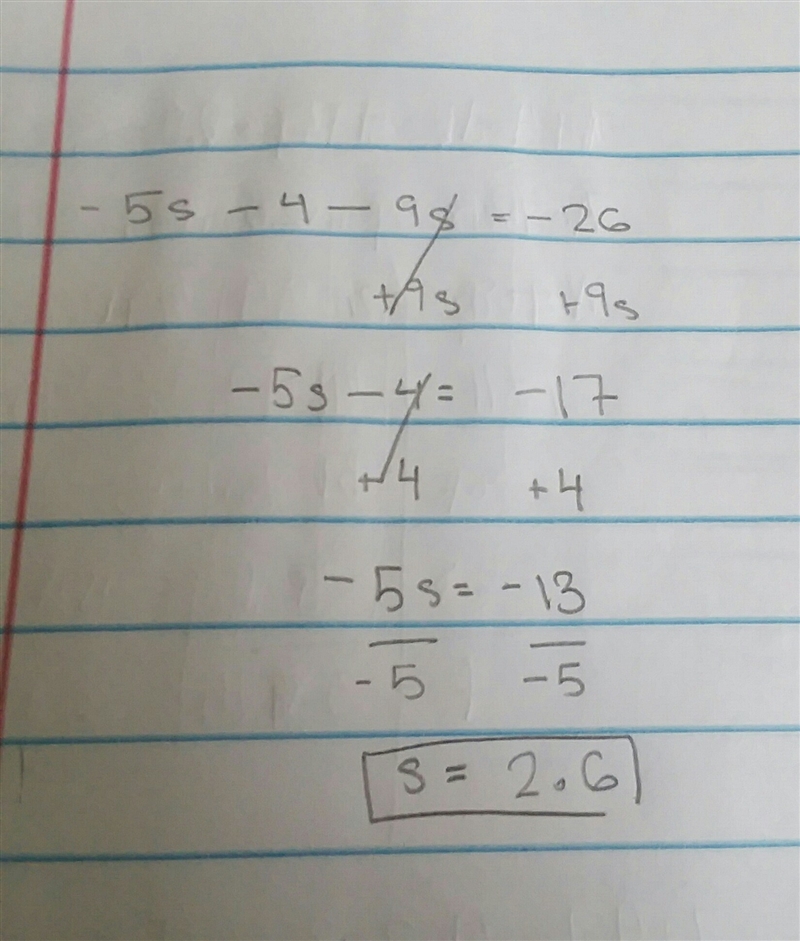 - 5s - 4 - 9s = - 26
+9s +9s
-5s - 4 = -17
+4 +4
- 5s = -13
-5 -5
s = 2.6